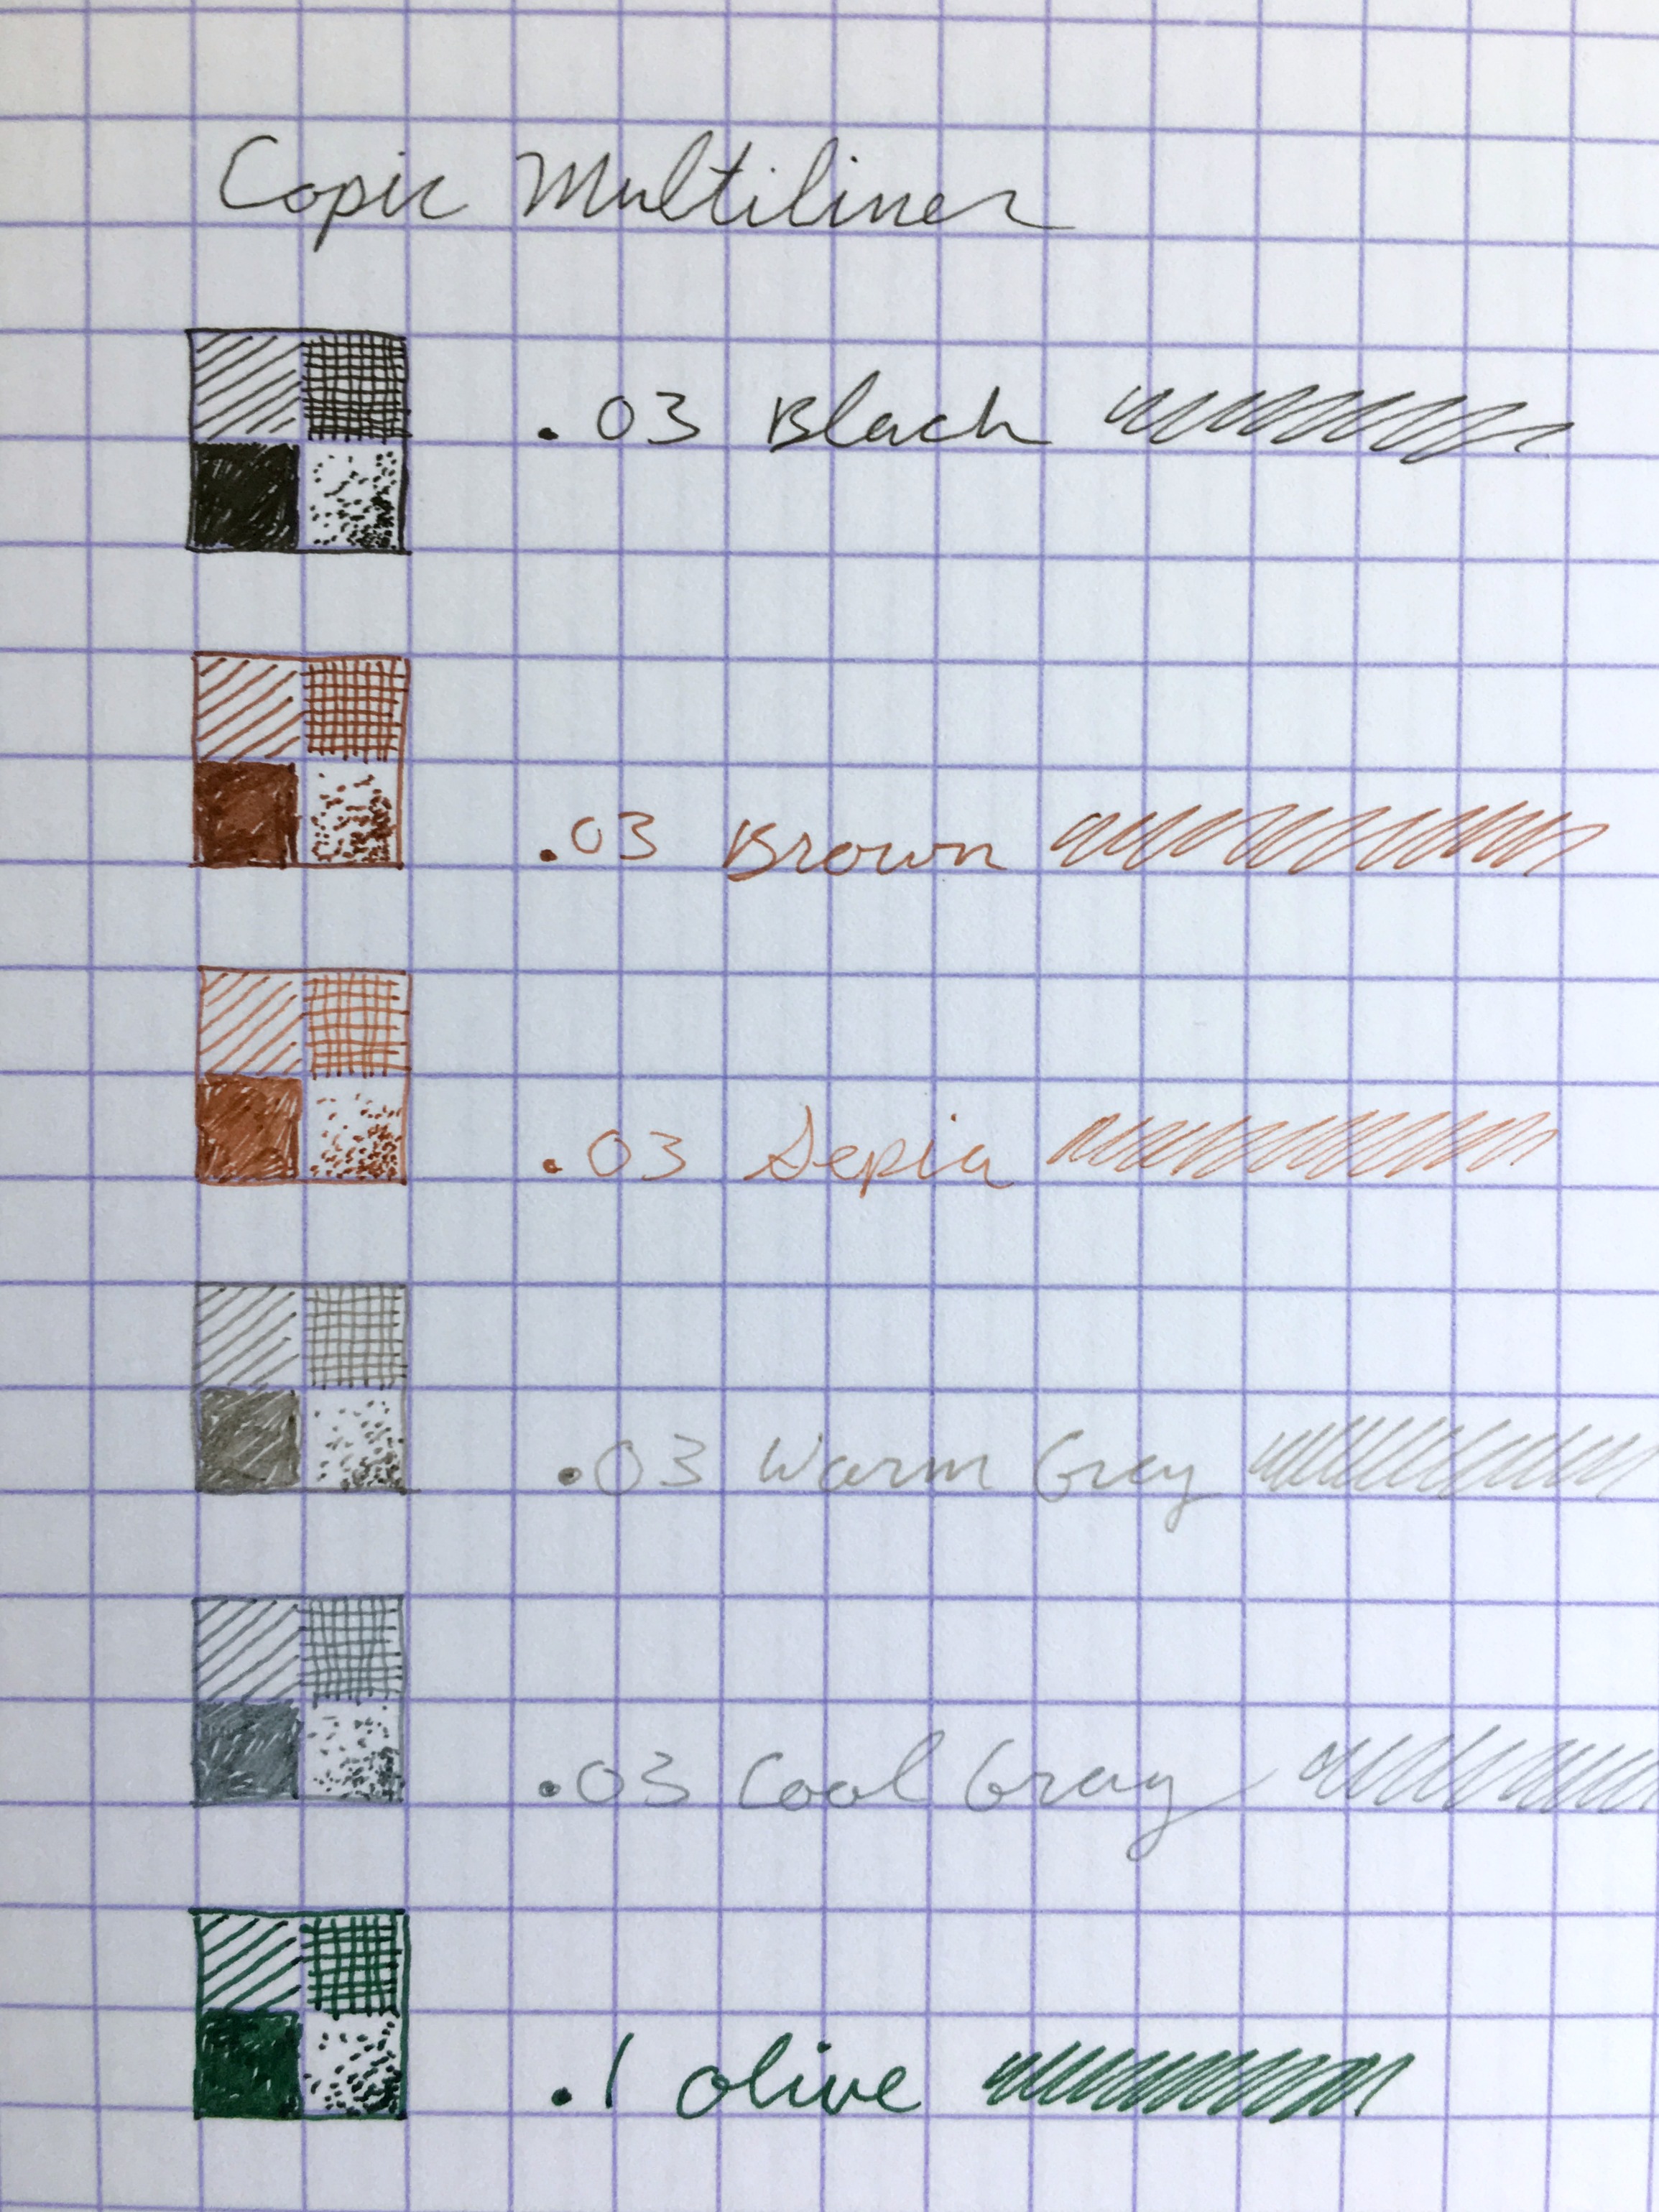 Copic Multiliner
.03 Black
.03 Brown
.03 Sepia
.03 Warm Grey
.03 Cool Gray
.1 olive